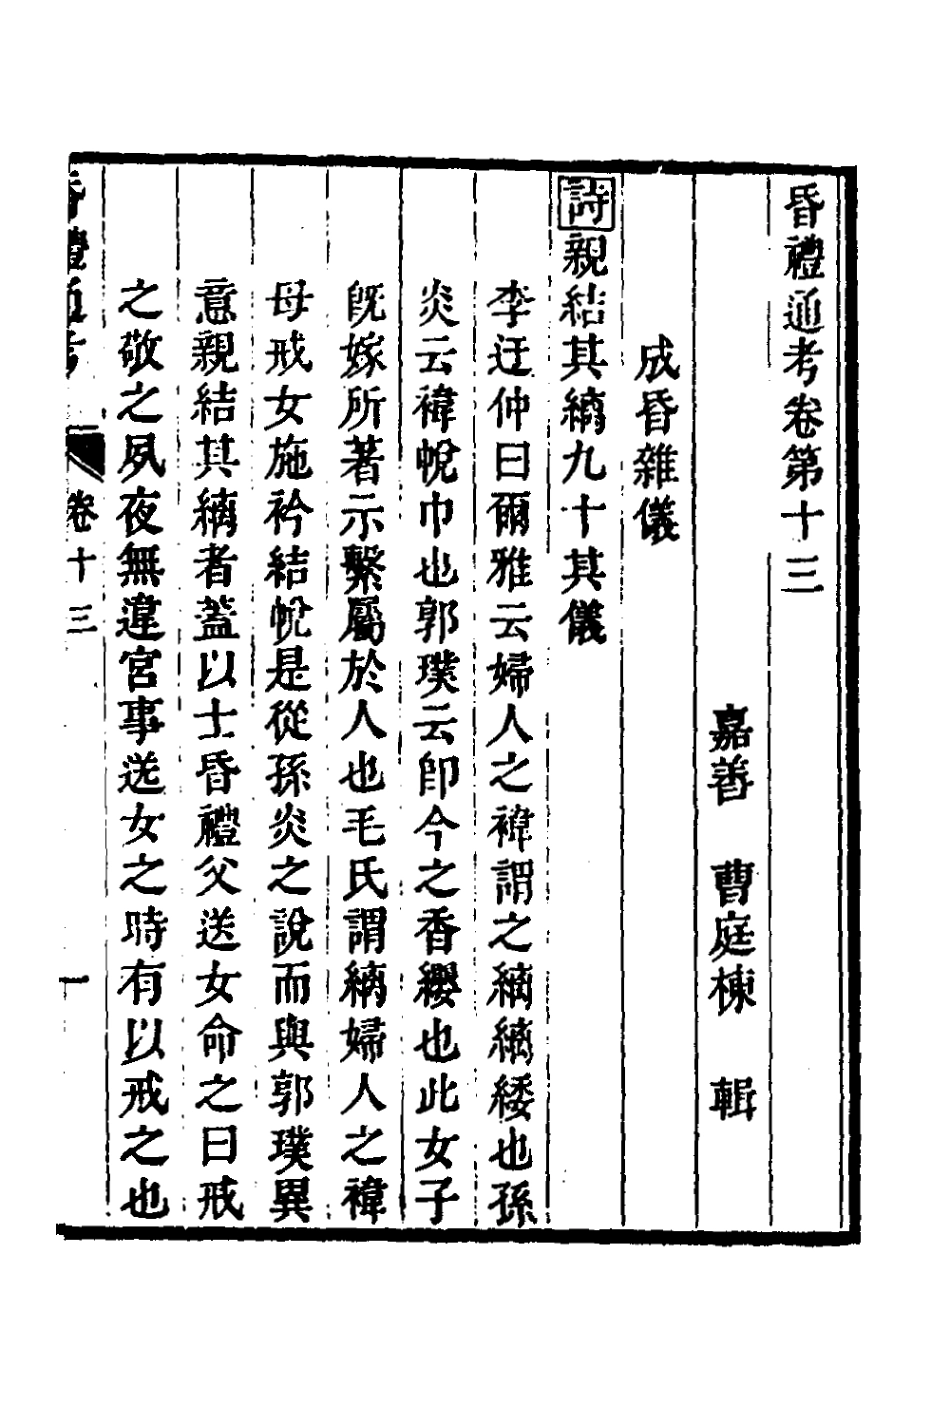 昏禮通考卷第十三
嘉善　曹庭棟　輯
成昏雜儀
詩親結其縭九十其儀
李迂仲曰爾雅云婦人之褘謂之縭縭緌也孫
炎云褘帨巾也郭璞云卽今之香纓也此女子
旣嫁所著示繫屬於人也毛氏謂縭婦人之褘
母戒女施衿結帨是從孫炎之說而與郭璞異
意親結其縭者蓋以士昏禮父送女命之曰戒
之敬之夙夜無違宮事送女之時有以戒之也
昏禮通考　卷十三　一